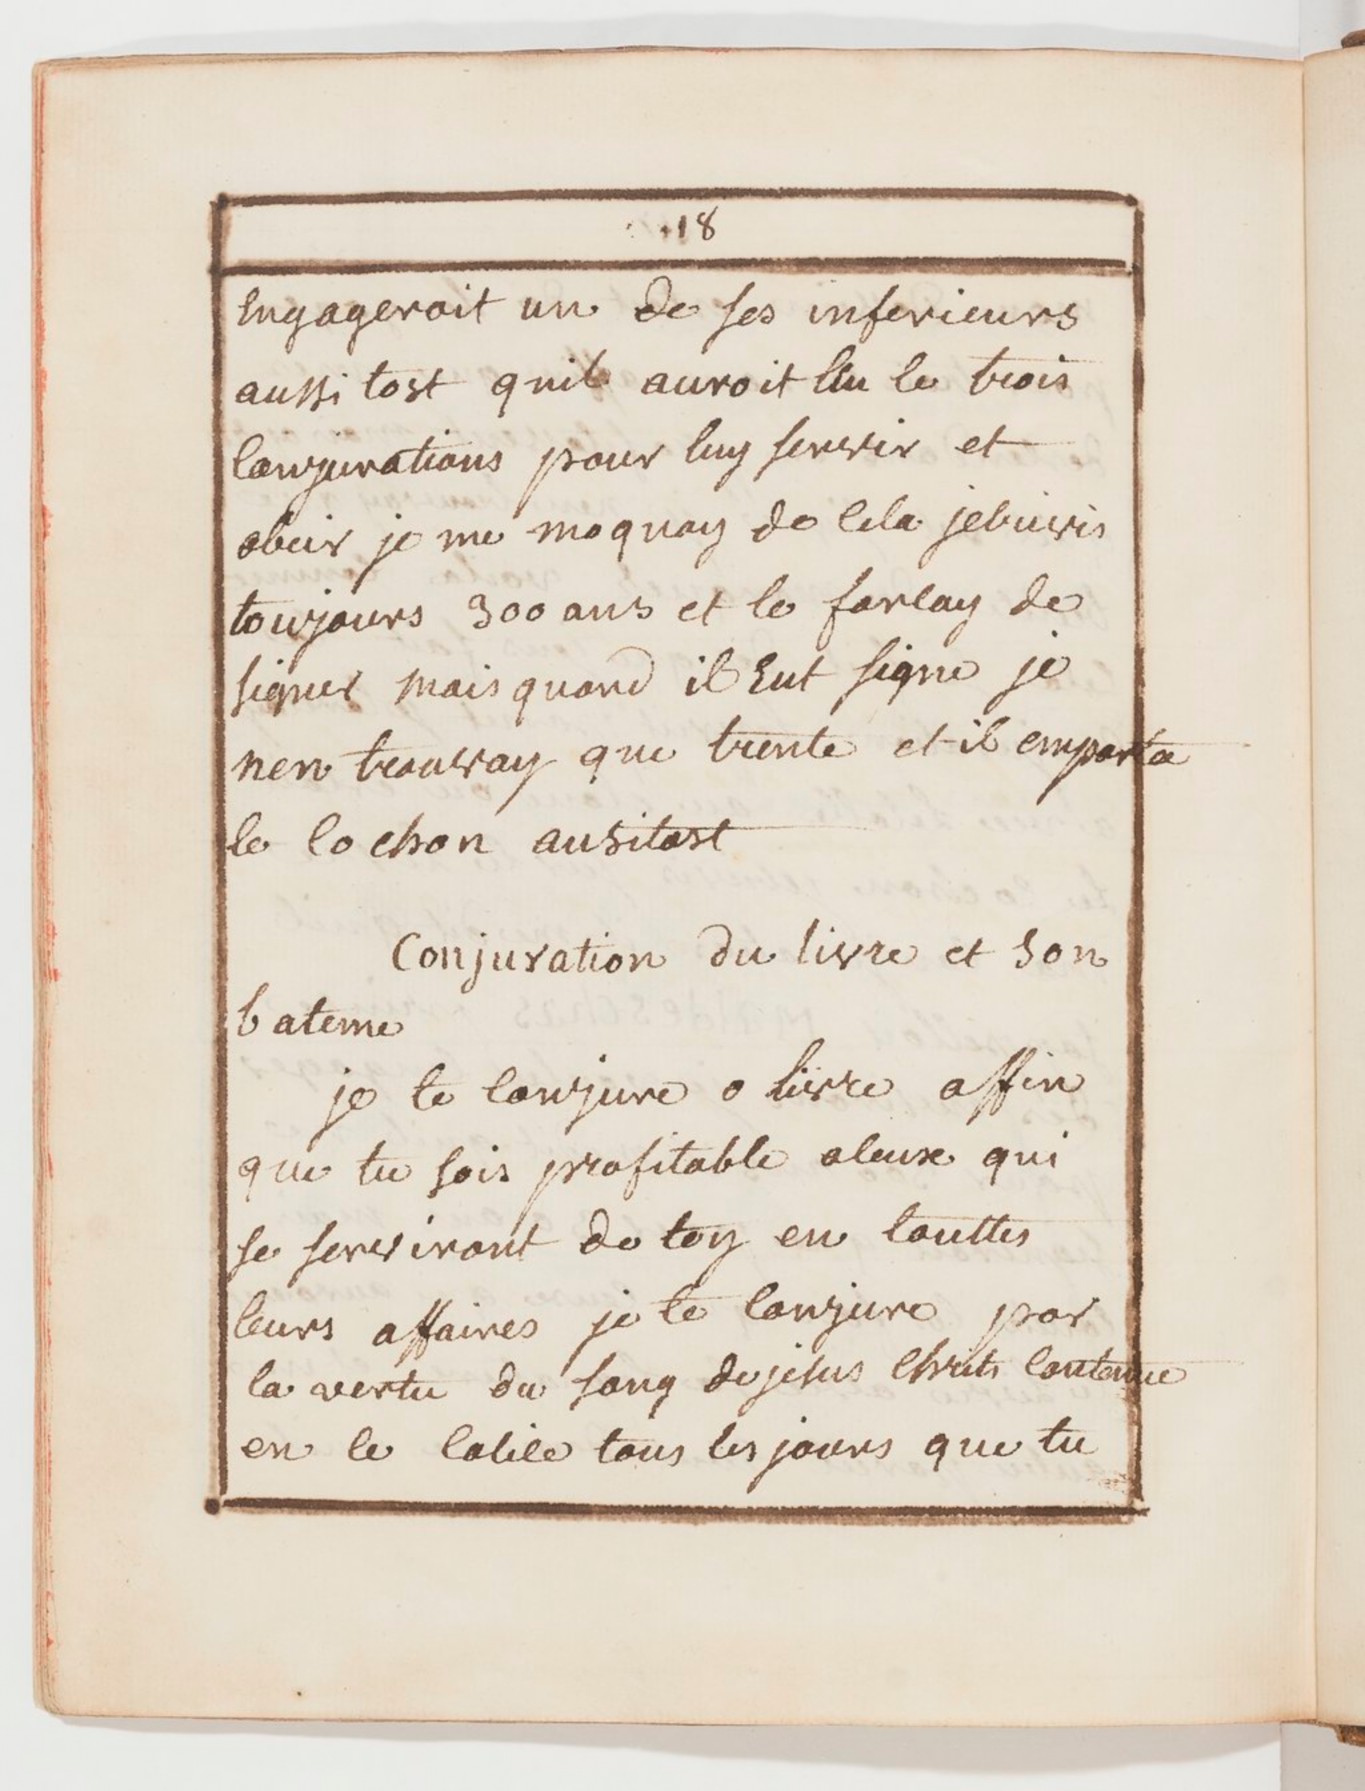 18
Engageroit un de ses inferieurs
aussi tost quil auroit lu le trois
conjurations pour luy servir et
obeir je me moquay de cela jecrivis
toujours 300 ans et le forcay de
signer mais quand il Eut signe je
nen trouvay que trente et il emporta
le cochon ausitost
Conjuration du livre et son
bateme
je te conjure o livre affin
que tu sois profitable aceux qui
se serviront de toy en touttes
leurs affaires je te conjure par
la vertu du sang de jesus Christ contenue
en le calice tous les jours que tu